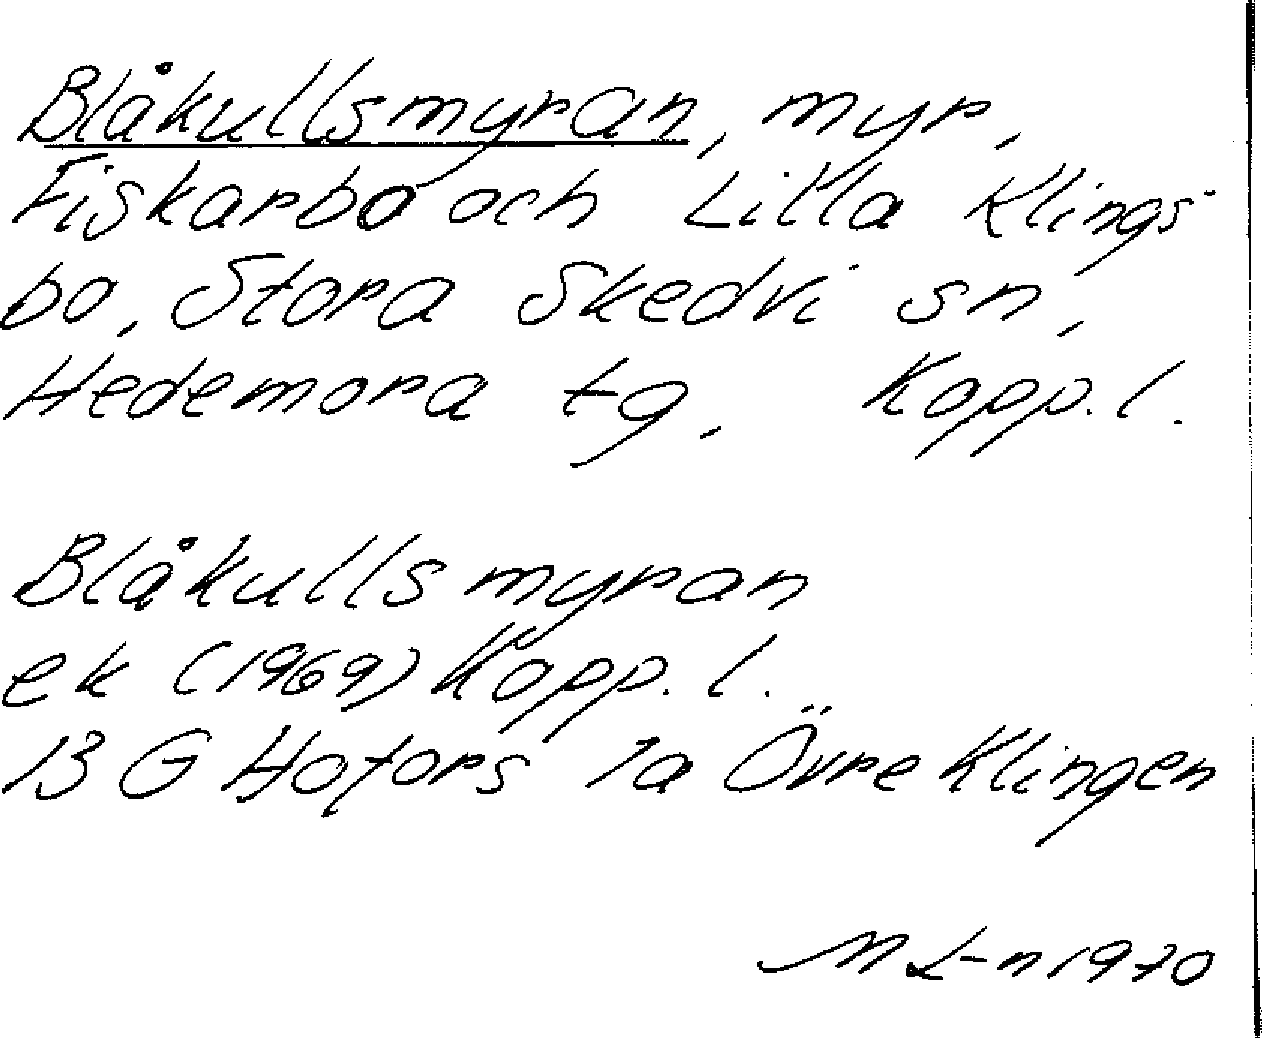 Blåkullsmyran, myr,
Fiskarbo och Lilla Klings-
bo, Stora Skedvi sn,
Hedemora tg, Kopp. l.
Blåkullsmyran
ek (1969) Kopp. l.
13 G Hofors 1a Övre Klingen
M L-n 1970